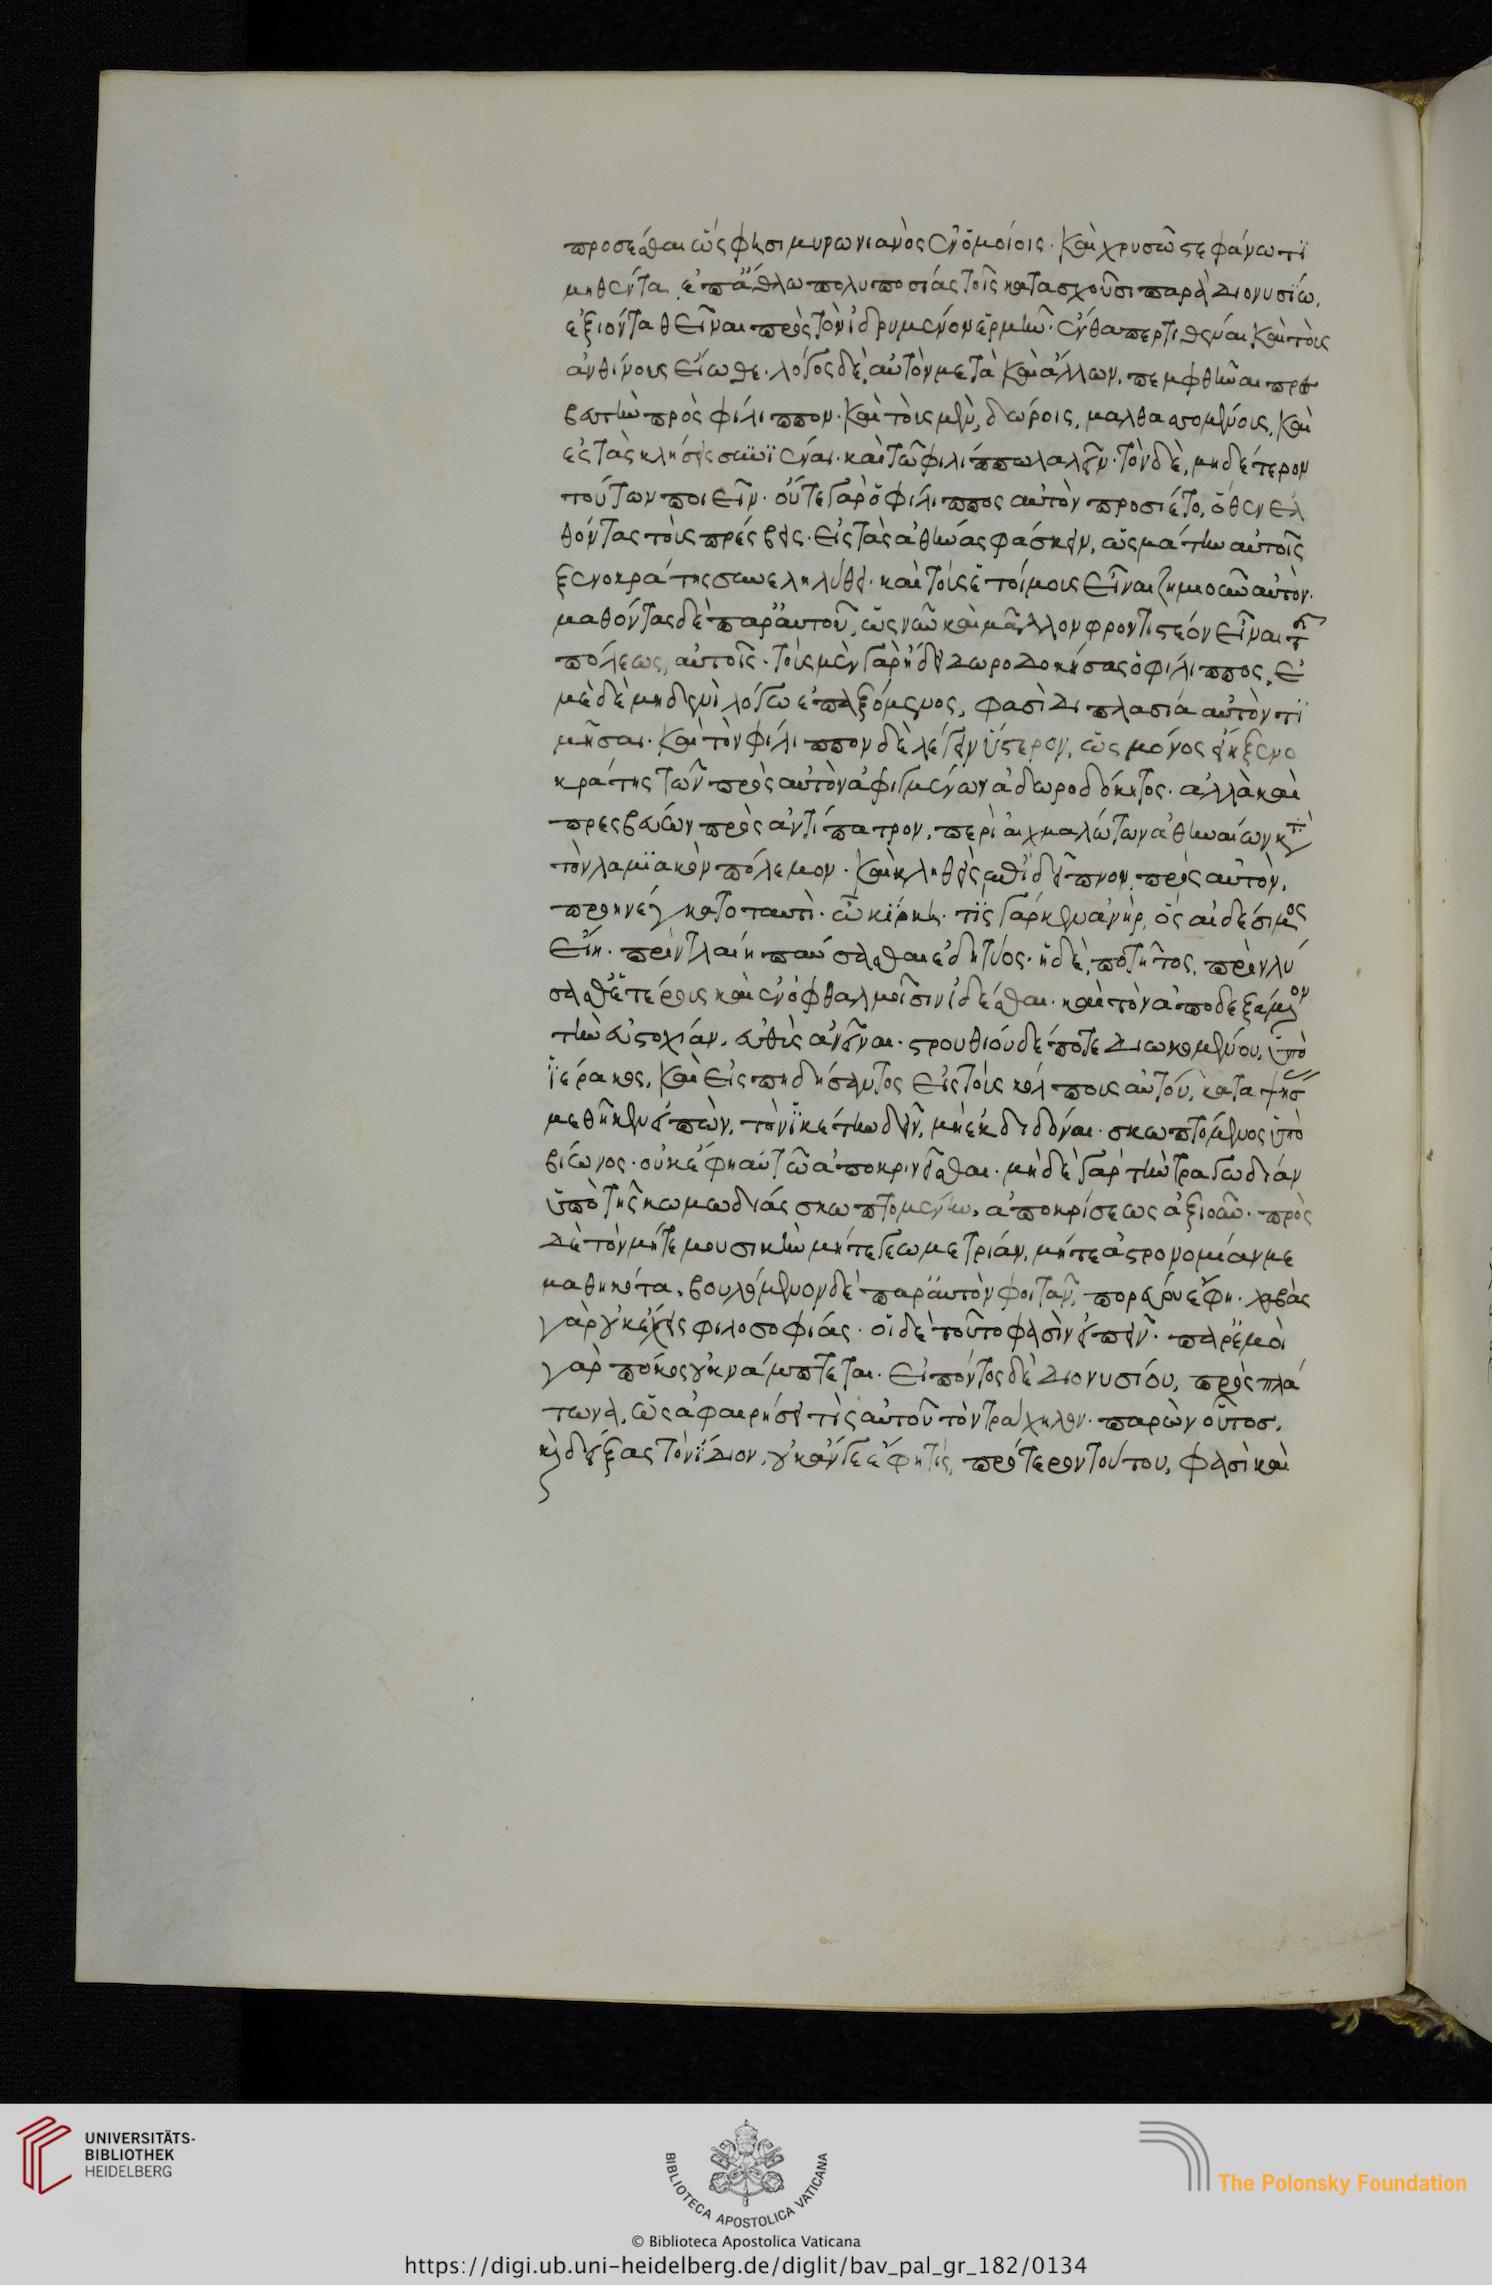 προσέσθαι ὥς φησι μυρωνιανὸς ἐν ὁμοίοις· καὶ χρυσῶ στεφάνω τϊ
μηθέντα ἐπάθλω πολυποσίας τοῖς κατασχοῦσι παρὰ διονυσίω,
ἐξιόντα θεῖναι πρὸς τὸν ἱδρυμένον ἑρμῆν· ἔνθα περ τιθέναι καὶ τοὺς
ἀνθίνους εἴωθε· λόγος δὲ, αὐτὸν μετὰ καὶ ἄλλων, πεμφθῆναι πρε
σβευτὴν πρὸς φίλιππον· καὶ τοὺς μὲν, δώροις, μαλθασσομένους, καὶ
ἐς τὰς κλήσεις συνϊέναι· καὶ τῶ φιλίππω λαλεῖν· τὸν δὲ, μηδέτερον
τούτων ποιεῖν· οὔτε γὰρ ὁ φίλιππος αὐτὸν προσιέτο, ὅθεν ἐλ
θόντας τοὺς πρέσβεις· εἰς τὰς ἀθήνας φάσκειν, ὡς μάτην αὐτοῖς
ξενοκράτης συνεληλύθει· καὶ τοὺς ἑτοίμους εἶναι ζημιοῦν αὐτὸν·
μαθόντας δὲ παρ' αὐτοῦ, ὡς νῦν καὶ μᾶλλον φροντιστέον εἶναι τῆς
πόλεως, αὐτοῖς· τοὺς μὲν γὰρ ἤδει δωροδοκήσας ὁ φίλιππος, ἐ
μὲ δὲ μηδενὶ λόγω ἐπαξόμενος, φασὶ διπλασία αὐτὸν τϊ
μῆσαι· καὶ τὸν φίλιππον δὲ λέγειν ὕστερον, ὡς μόνος εἴη ξενο
κράτης τῶν πρὸς αὐτὸν ἀφιγμένων ἀδωροδόκητος· ἀλλὰ καὶ
πρεσβεύων πρὸς ἀντίπατρον, περὶ αἰχμαλώτων ἀθηναίων κατὰ
τὸν λαμϊακὸν πόλεμον· καὶ κληθεὶς ἐπὶ δεῖπνον πρὸς αὐτὸν,
προηνέγκατο ταυτὶ· ὦ κίρκη· τίς γάρ κεν ἀνὴρ, ὃς αἰδέσιμος
εἴη· πρὶν τλαίη πάσασθαι ἐδητύος· ἠδὲ, ποτῆτος, πρὶν λύ
σασθ' ἑτέρους καὶ ἐν ὀφθαλμοῖσιν ἰδέσθαι· καὶ τὸν ἀποδεξάμενον
τὴν εὐστοχίαν, εὐθὺς ἀνεῖναι· στρουθίου δέ ποτε διωκομένου, ὑπὸ
ἱέρακος, καὶ εἰσπηδήσαντος εἰς τοὺς κόλπους αὐτοῦ, καταψήσ
με θῆκεν εἰπὼν, τὸν ἱκέτην δεῖν, μὴ ἐκδιδόναι· σκωπτόμενος ὑπὸ
βίωνος· οὐκ ἔφη αὐτῶ ἀποκρινεῖσθαι· μὴδὲ γὰρ τὴν τραγωδίαν
ὑπὸ τῆς κωμωδίας σκωπτομένην, ἀποκρίσεως ἀξιοῦν· πρὸς
δὲ τὸν μήτε μουσικὴν μήτε γεωμετρίαν, μήτε ἀστρονομίαν με
μαθηκότα, βουλόμενον δὲ παρ' αὐτὸν φοιτᾶν, πορεύου ἔφη· λαβὰς
γὰρ οὐκ ἔχεις φιλοσοφίας· οἱ δὲ τοῦτο φασὶν εἰπεῖν· παρ' ἐμοὶ
γὰρ πόκος οὐ κνάμπτεται· εἰπόντος δὲ διονυσίου, πρὸς πλά
τωνα, ὡς ἀφαιρήσει τὶς αὐτοῦ τὸν τράχηλον· παρὼν οὗτος,
καὶ δείξας τὸν ἴδιον, οὐκ ἄν γε ἔφη τὶς, πρότερον τούτου, φασὶ καὶ
UNIVERSITÄTS-
BIBLIOTHEK
HEIDELBERG
BIBLIOTECA APOSTOLICA VATICANA
The Polonsky Foundation
© Biblioteca Apostolica Vaticana
https://digi.ub.uni-heidelberg.de/diglit/bav_pal_gr_182/0134